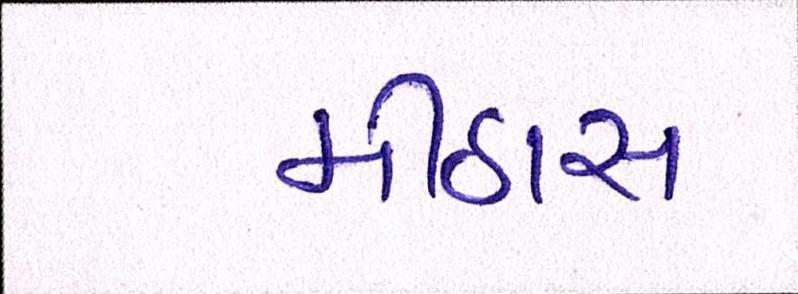 મીઠાસ